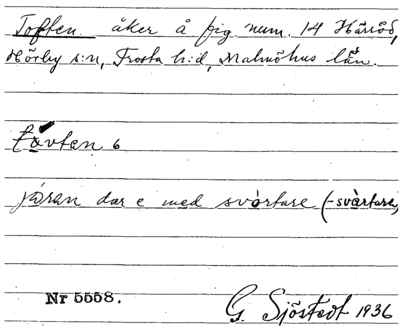 Toften. åker å fig. num. 14 Häröd,
Hörby s:n, Frosta h:d, Malmöhus län.
tåvten 6
jóran dar e med svòrtare (-svàrtare)
Nr 5558.
G. Sjöstedt 1936